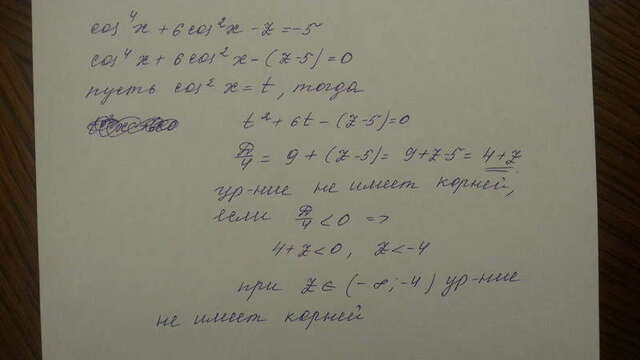 cos⁴x + 6cos²x - z = -5
cos⁴x + 6cos²x - (z-5) = 0
пусть cos²x = t, тогда
t² + 6t - (z-5) = 0
D/4 = 9 + (z-5) = 9+z-5 = 4+z
ур-ние не имеет корней,
если D/4 < 0 =>
4+z<0, z<-4
при z ∈ (-∞; -4) ур-ние
не имеет корней